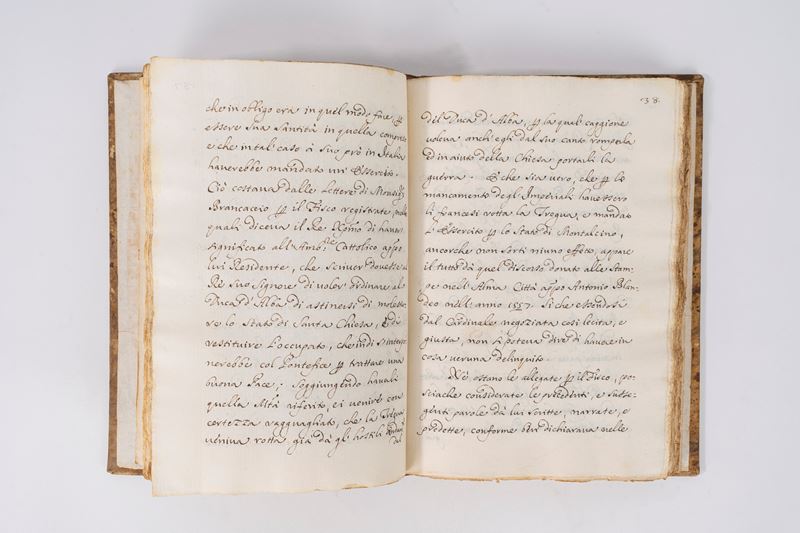 che in obligo era in quel modo fare, ꝑ
essere Sua Santità in quella compresa
e che in tal caso à suo prò in Italia
haverebbe mandato un' Essercito.
Ciò costava dalle Lettere di Monsig.r
Brancaccio ꝑ il Fisco registrate, nelle
quali diceva il Rè Xpmo di haver
significato all'Amb.re Cattolico appo
lui Residente, che scriver dovesse al
Rè suo Signore di voler ordinare al
Duca d'Alba di astinersi di molesta-
re lo Stato di Santa Chiesa, e di
restituire l'occupato, che indi s'interpo
nerebbe col Pontefice ꝑ trattare una
buona Pace; Soggiungendo haverli
quella Mtà riferito, ei venire con
certezza ragguagliato, che la Tregua
veniva rotta già dà gl' hostili
dal
38.
del Duca d'Alba, ꝑ la qual caggione
voleva anch'egli dal suo canto romperla
ed in aiuto della Chiesa portarli la
guerra. E che sia vero, che ꝑ lo
mancamento degl'Imperiali havessero
li francesi rotta la Tregua, e mandato
l'Essercito ꝑ lo Stato di Montalcino,
ancorche non sortì niuno effetto, appare
il tutto dà quel discorso donato alle Stam-
pe nell'Alma Città appo Antonio Blan-
deo nell'anno 1557. Si che essendosi
dal Cardinale negoziata così lecita, e
giusta, non si poteva dire di havere in
cosa veruna delinquito.
Nè ostano le allegate ꝑ il Fisco, po-
sciache considerate le precedenti, e susse-
genti parole dà lui scritte, narrate, e
predette, conforme ben dichiarava nelle